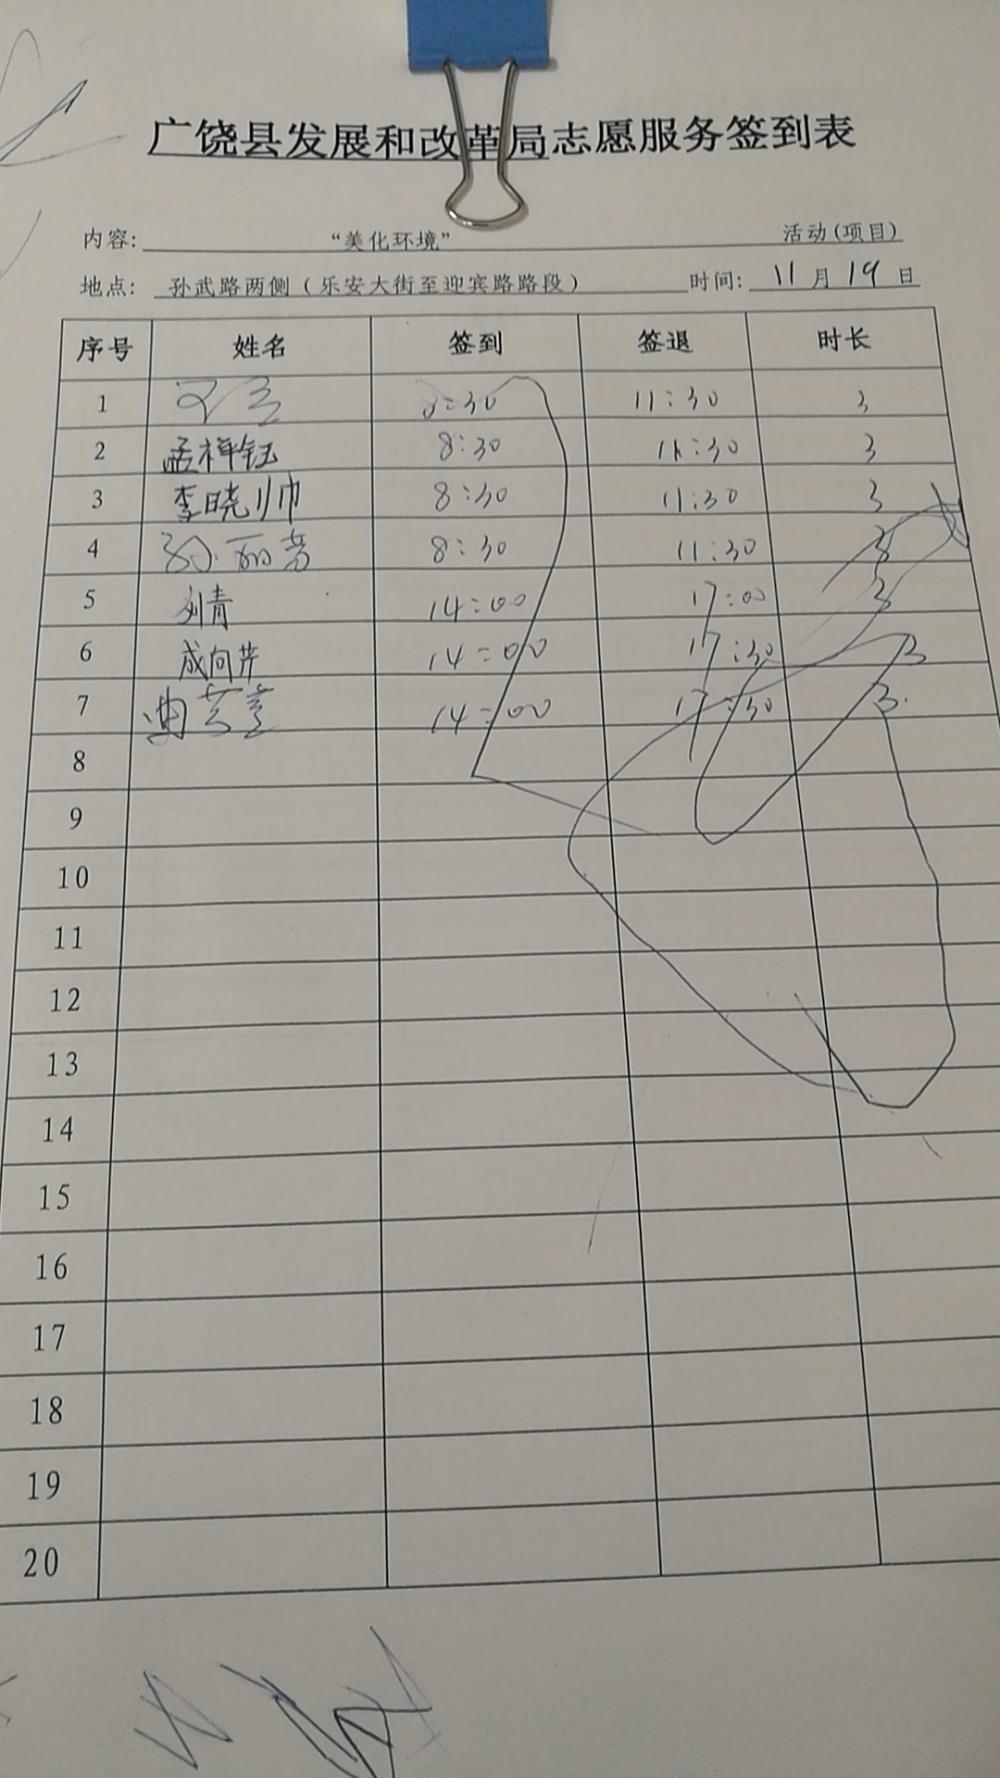 广饶县发展和改革局志愿服务签到表
内容: “美化环境” 活动(项目)
地点: 孙武路两侧（乐安大街至迎宾路路段） 时间: 11月19日
序号 姓名 签到 签退 时长
1 8:30 11:30 3
2 孟祥钰 8:30 11:30 3
3 李晓帅 8:30 11:30 3
4 孙丽芳 8:30 11:30 3
5 刘青 14:00 17:00 3
6 成向芹 14:00 17:30 3
7 曲 14:00 17:30 3.
8
9
10
11
12
13
14
15
16
17
18
19
20